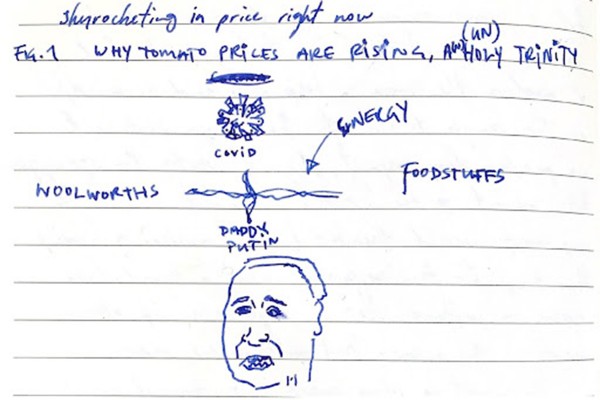 skyrocketing in price right now
FIG. 1 WHY TOMATO PRICES ARE RISING, AN (UN) HOLY TRINITY
COVID
SYNERGY
WOOLWORTHS
FOODSTUFFS
DADDY
PUTIN